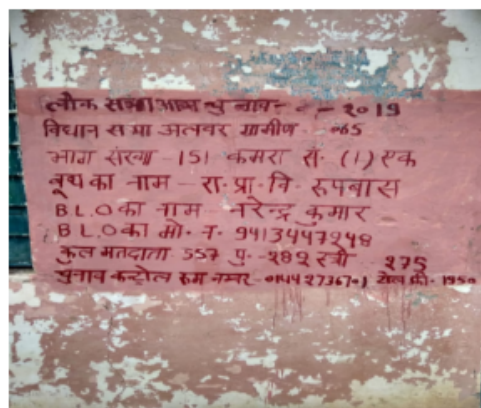 लोक सभा आम चुनाव - २०19
विधान सभा अलवर ग्रामीण - 065
भाग संख्या - 151 कमरा सं. (1) एक
बूथ का नाम - रा. प्रा. वि. रूपबास
B.L.O का नाम - नरेन्द्र कुमार
B.L.O का मो. न. 9413447248
कुल मतदाता 557 पु. - 282 स्त्री 275
चुनाव कन्ट्रोल रूम नम्बर - 0144 2736701 टोल फ्री. 1950